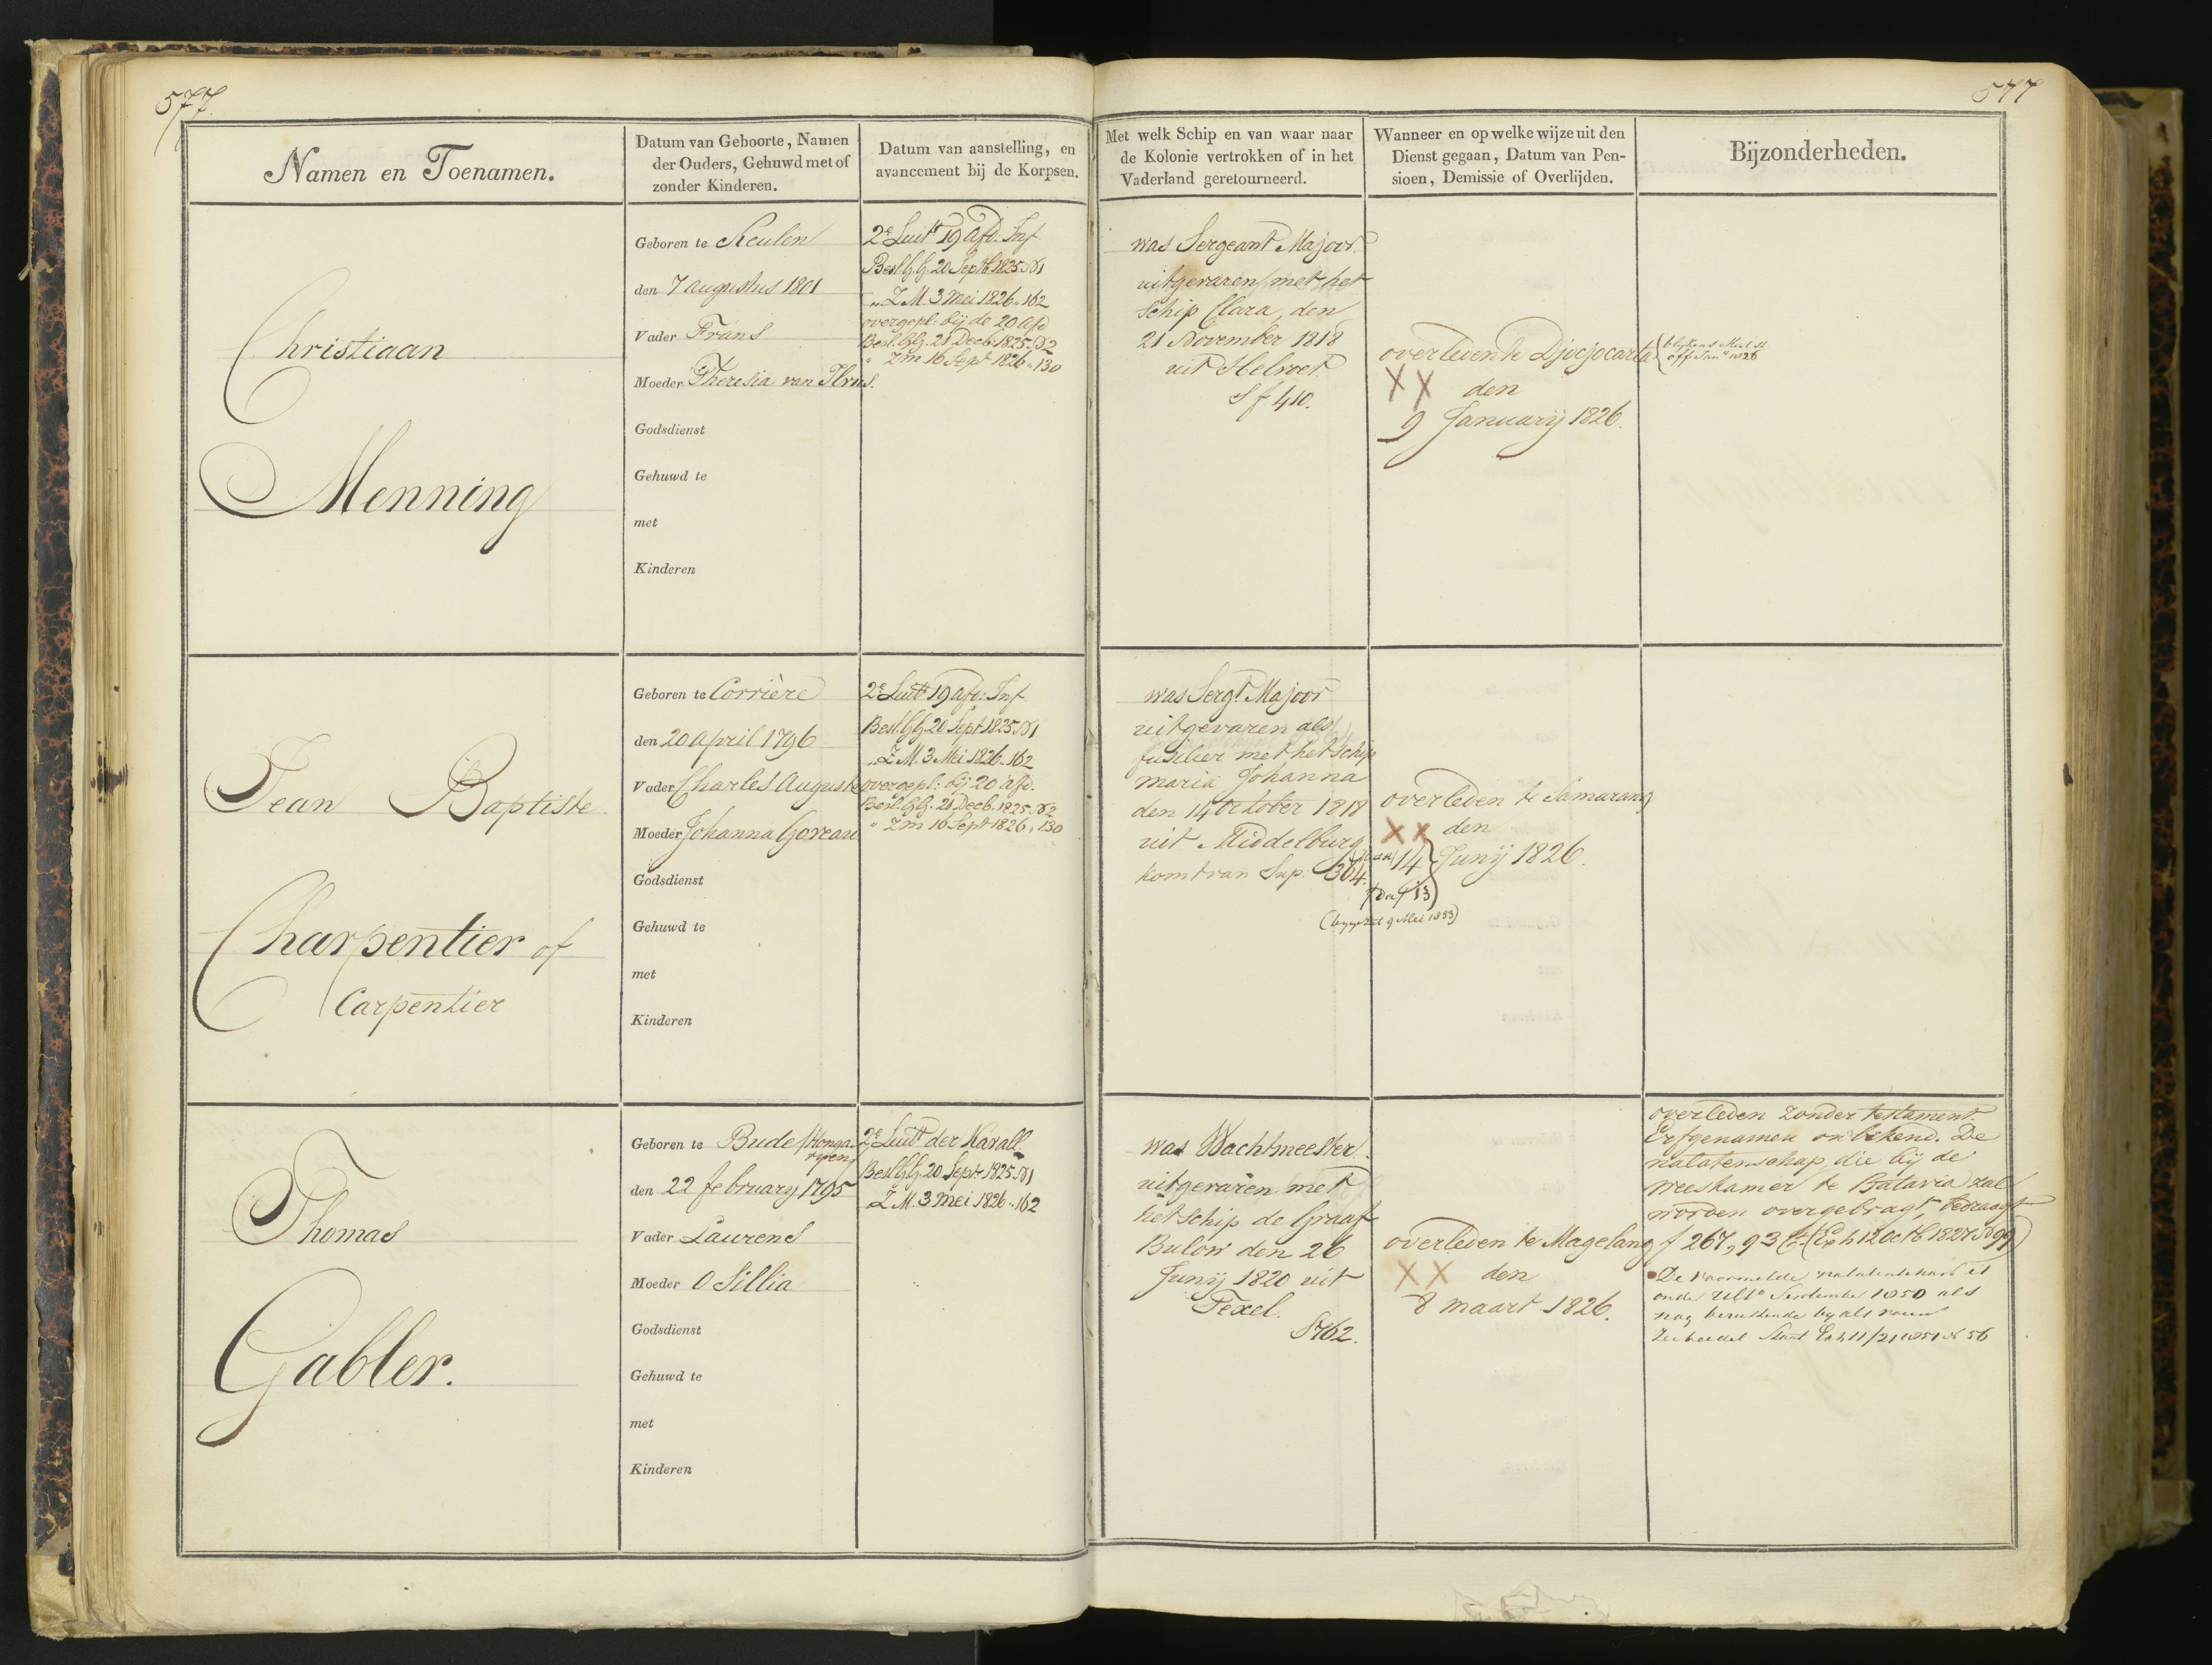 577.
577
Namen en Toenamen.
Datum van Geboorte, Namen
der Ouders, Gehuwd met of
zonder Kinderen.
Datum van aanstelling, en
avancement bij de Korpsen.
Met welk Schip en van waar naar
de Kolonie vertrokken of in het
Vaderland geretourneerd.
Wanneer en op welke wijze uit den
Dienst gegaan, Datum van Pen-
sioen, Demissie of Overlijden.
Bijzonderheden.
Christiaan
Menning
Geboren te Keulen
den 7 augustus 1801
Vader Frans
Moeder Theresia van
Godsdienst
Gehuwd te
met
Kinderen
2e Luit 19 Afd: Inf.
Besl. G.G. 20 Septb 1825 N1
„ Z.M. 3 Mei 1826 „ 162
overgepl: bij de 20 Afd
Besl. G.G. 21 Decb. 1825 N2
" Z m 16 Sept 1826 „ 130
was Sergeant Majoor
uitgevaren met het
Schip Clara, den
21 November 1818
uit Helvoet.
S f 410.
overleden te Djocjocarta
XX den
9 Januarij 1826.
Jean Baptiste
Charpentier of
Carpentier
Geboren te Corrière
den 20 april 1796
Vader Charles Auguste
Moeder Johanna Goreau
Godsdienst
Gehuwd te
met
Kinderen
2e Luit 19 Afd: Inf.
Besl. G.G. 20 Sept 1825 N1
„ Z.M. 3 Mei 1826 „ 162
overgepl: bij 20 afd.
Besl. G.G. 21 Decb. 1825 N2
" Z m 16 Sept 1826 „ 130
was Sergt Majoor
uitgevaren als
fuselier met het schip
Maria Johanna
den 14 October 1818
uit Middelburg
komt van Sup. 304.
overleden te Samarang
XX den
14 Junij 1826.
9 Mei 1853)
Thomas
Gabler.
Geboren te Bude / Honga-
ryen/
den 22 february 1795
Vader Laurens
Moeder O Sillia
Godsdienst
Gehuwd te
met
Kinderen
2e Luit der Kavall
Besl. G.G. 20 Sept 1825 N1
„ Z.M. 3 Mei 1826 „ 162
was Wachtmeester
uitgevaren met
het schip de Graaf
Bulow den 26
Junij 1820 uit
Texel.
S 762.
overleden te Magelang
XX den
8 maart 1826.
overleden zonder testament
Erfgenamen onbekend. De
nalatenschap, die bij de
Weeskamer te Batavia zal
worden overgebragt, bedraagt
f 267,93
De voormelde nalatenschap is
onder Ulto September 1850 als
nog berustende